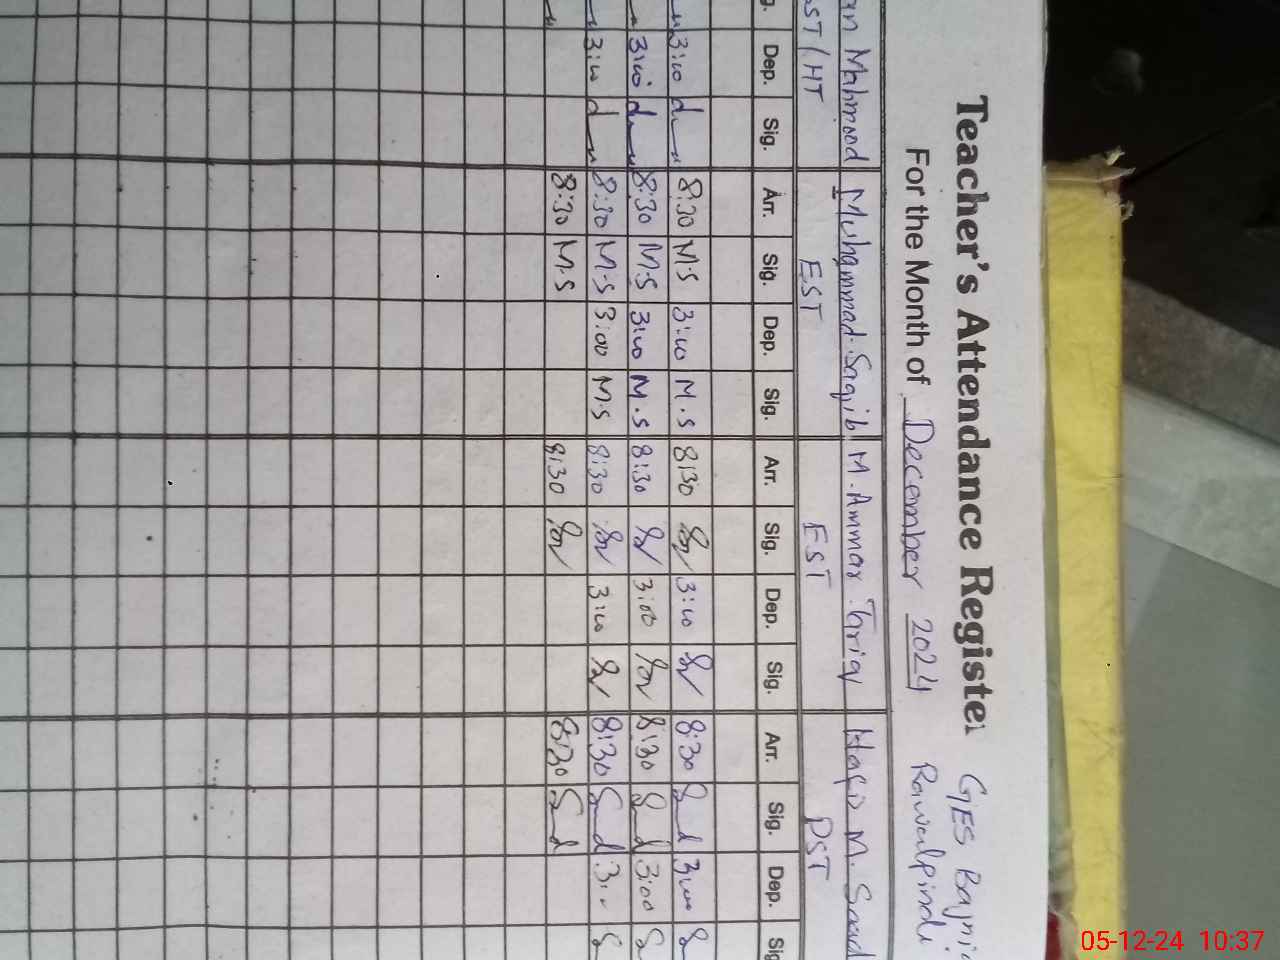 Teacher's Attendance Register GES
For the Month of December 2024 Rawalpindi
Mahmood Muhammad Saqib M. Ammar Tariq M. Saad
ST/HT EST EST PST
Dep. Sig. Arr. Sig. Dep. Sig. Arr. Sig. Dep. Sig. Arr. Sig. Dep. Sig
3:00 8:30 M.S 3:00 M.S 8:30 3:00 8:30 3:00
3:00 8:30 M.S 3:00 M.S 8:30 3:00 8:30 3:00
3:00 8:30 M.S 3:00 M.S 8:30 3:00 8:30
8:30 M.S 8:30 8:30
05-12-24 10:37